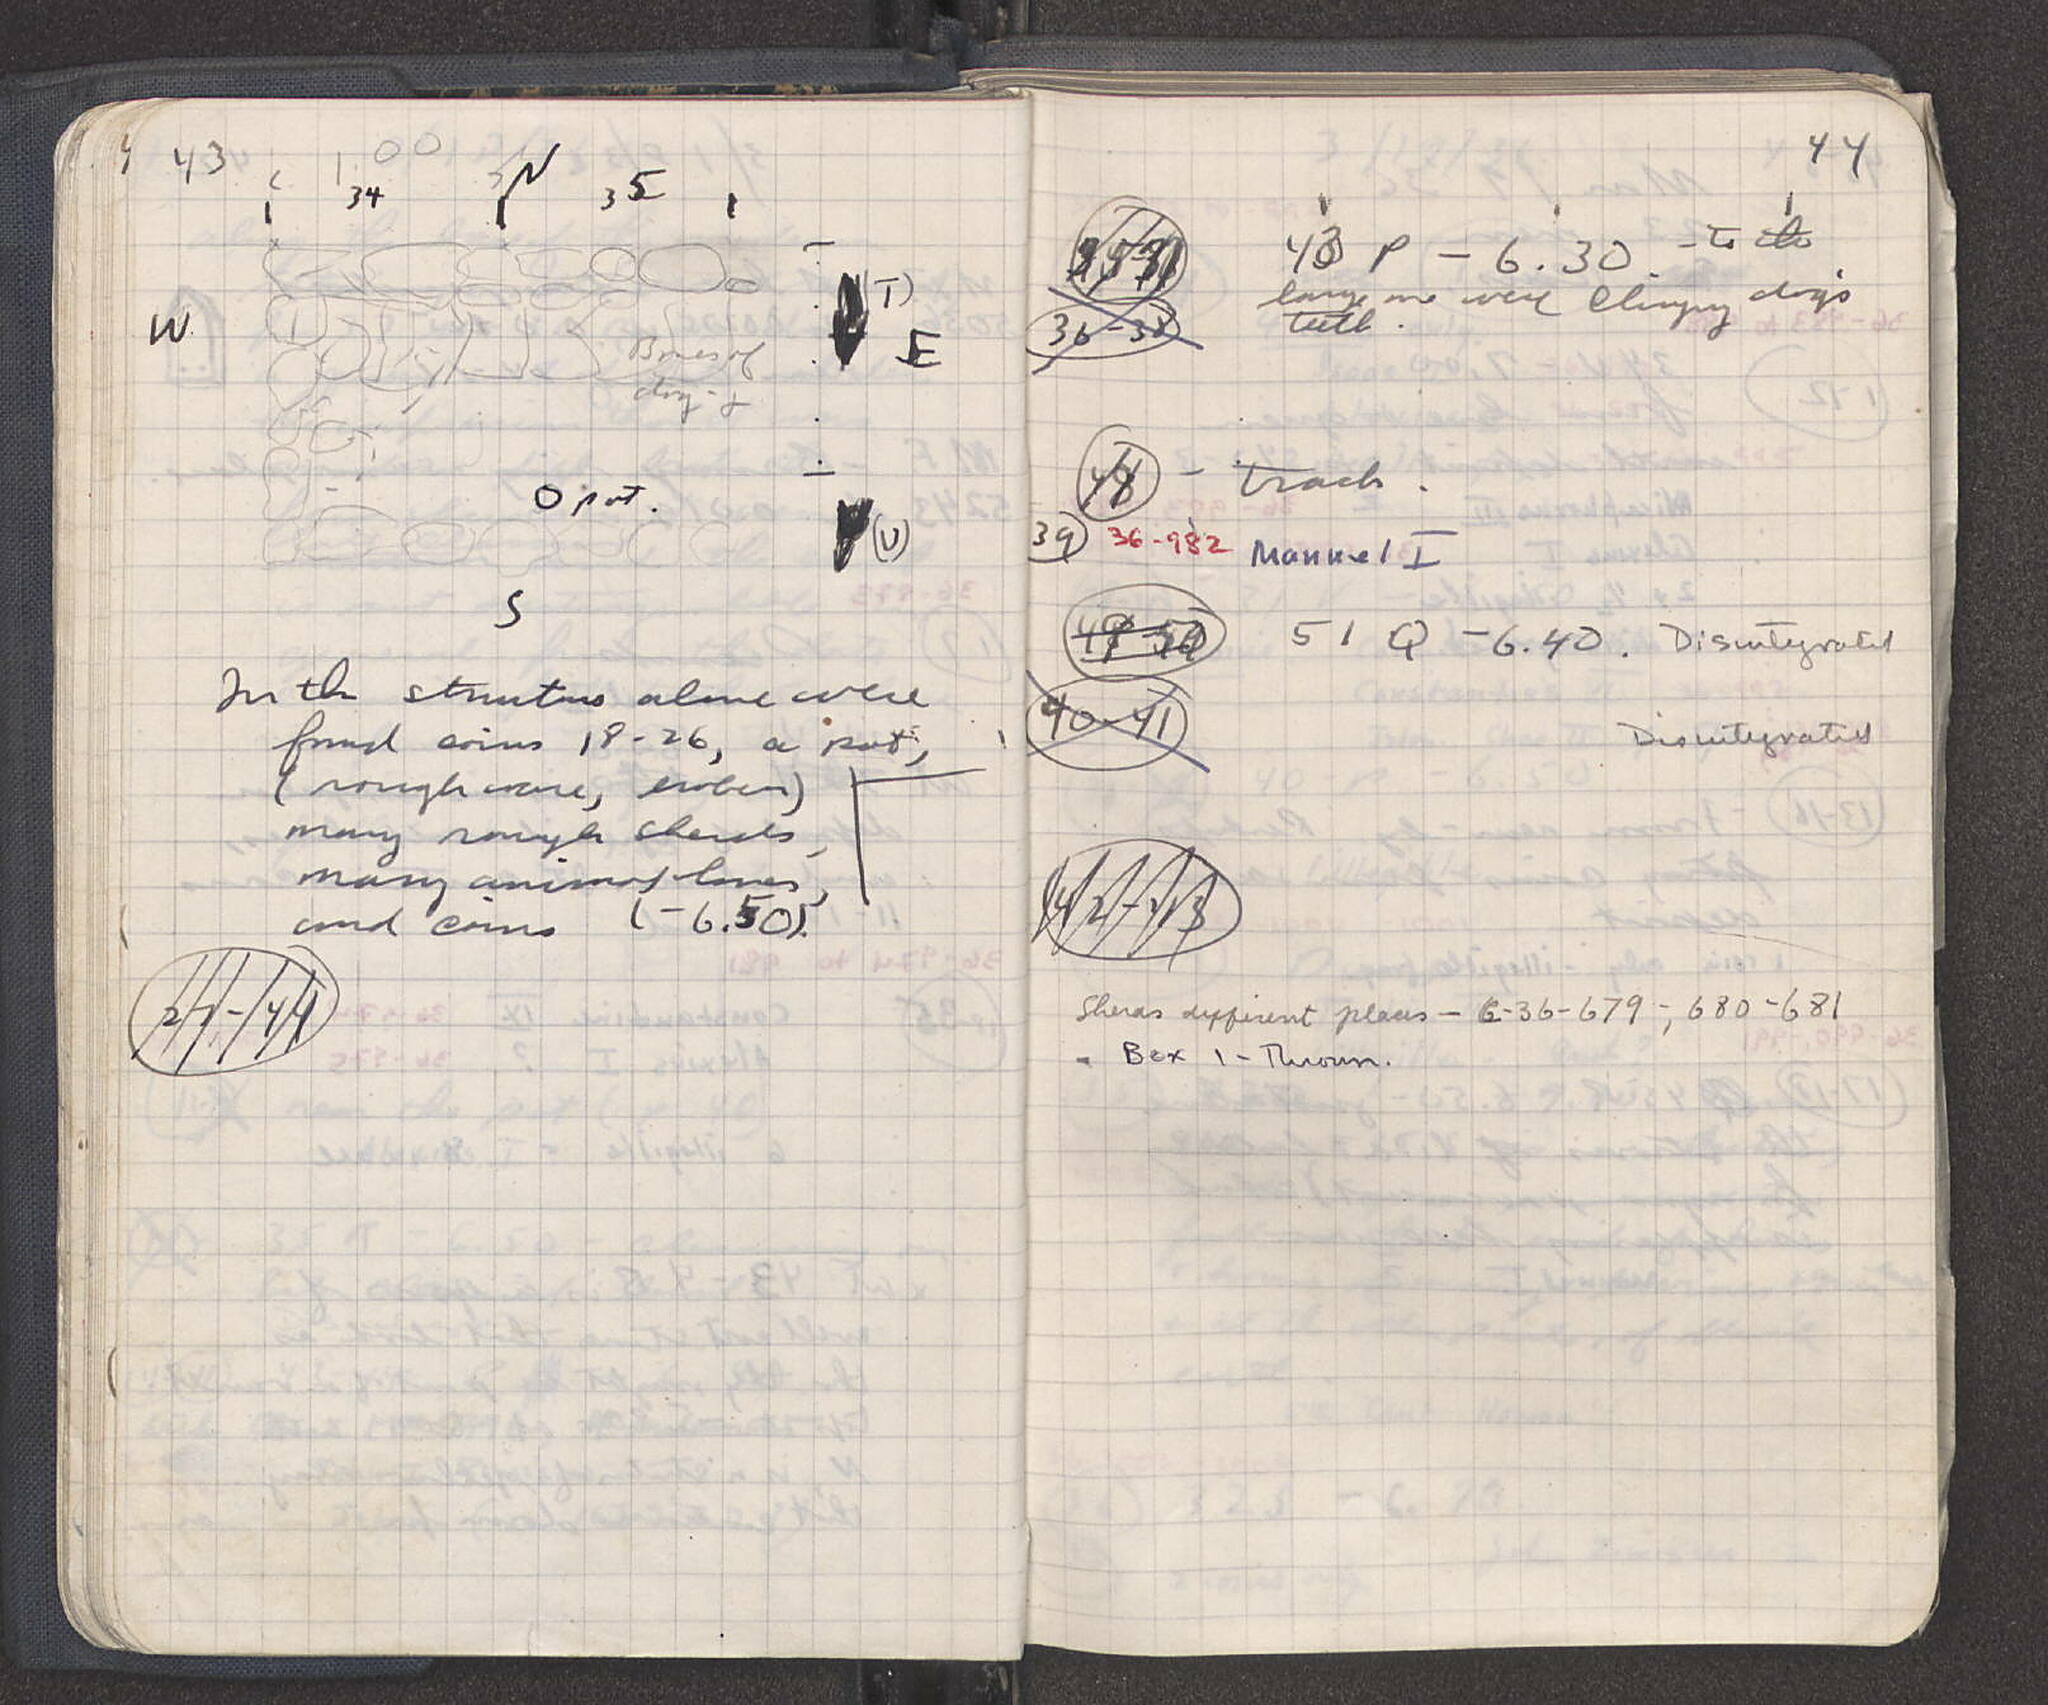 43
1 00
N
34
35
(T)
W
E
Bones of
dog
O pot.
(U)
S
In the structure alone were
found coins 18-26, a pot,
(rough ware, broken)
many rough sherds,
many animal bones,
and coins (-6.50).
27-44
44
43 P - 6.30. - To the
large one were clinging dog's
teeth.
36-38
48 - track.
39 36-982 Manuel I
49-50 51 Q - 6.40. Disintegrated
40-41
Disintegrated
42-43
Sherds different places - C-36-679-, 680-681
- Box 1 - Thrown.